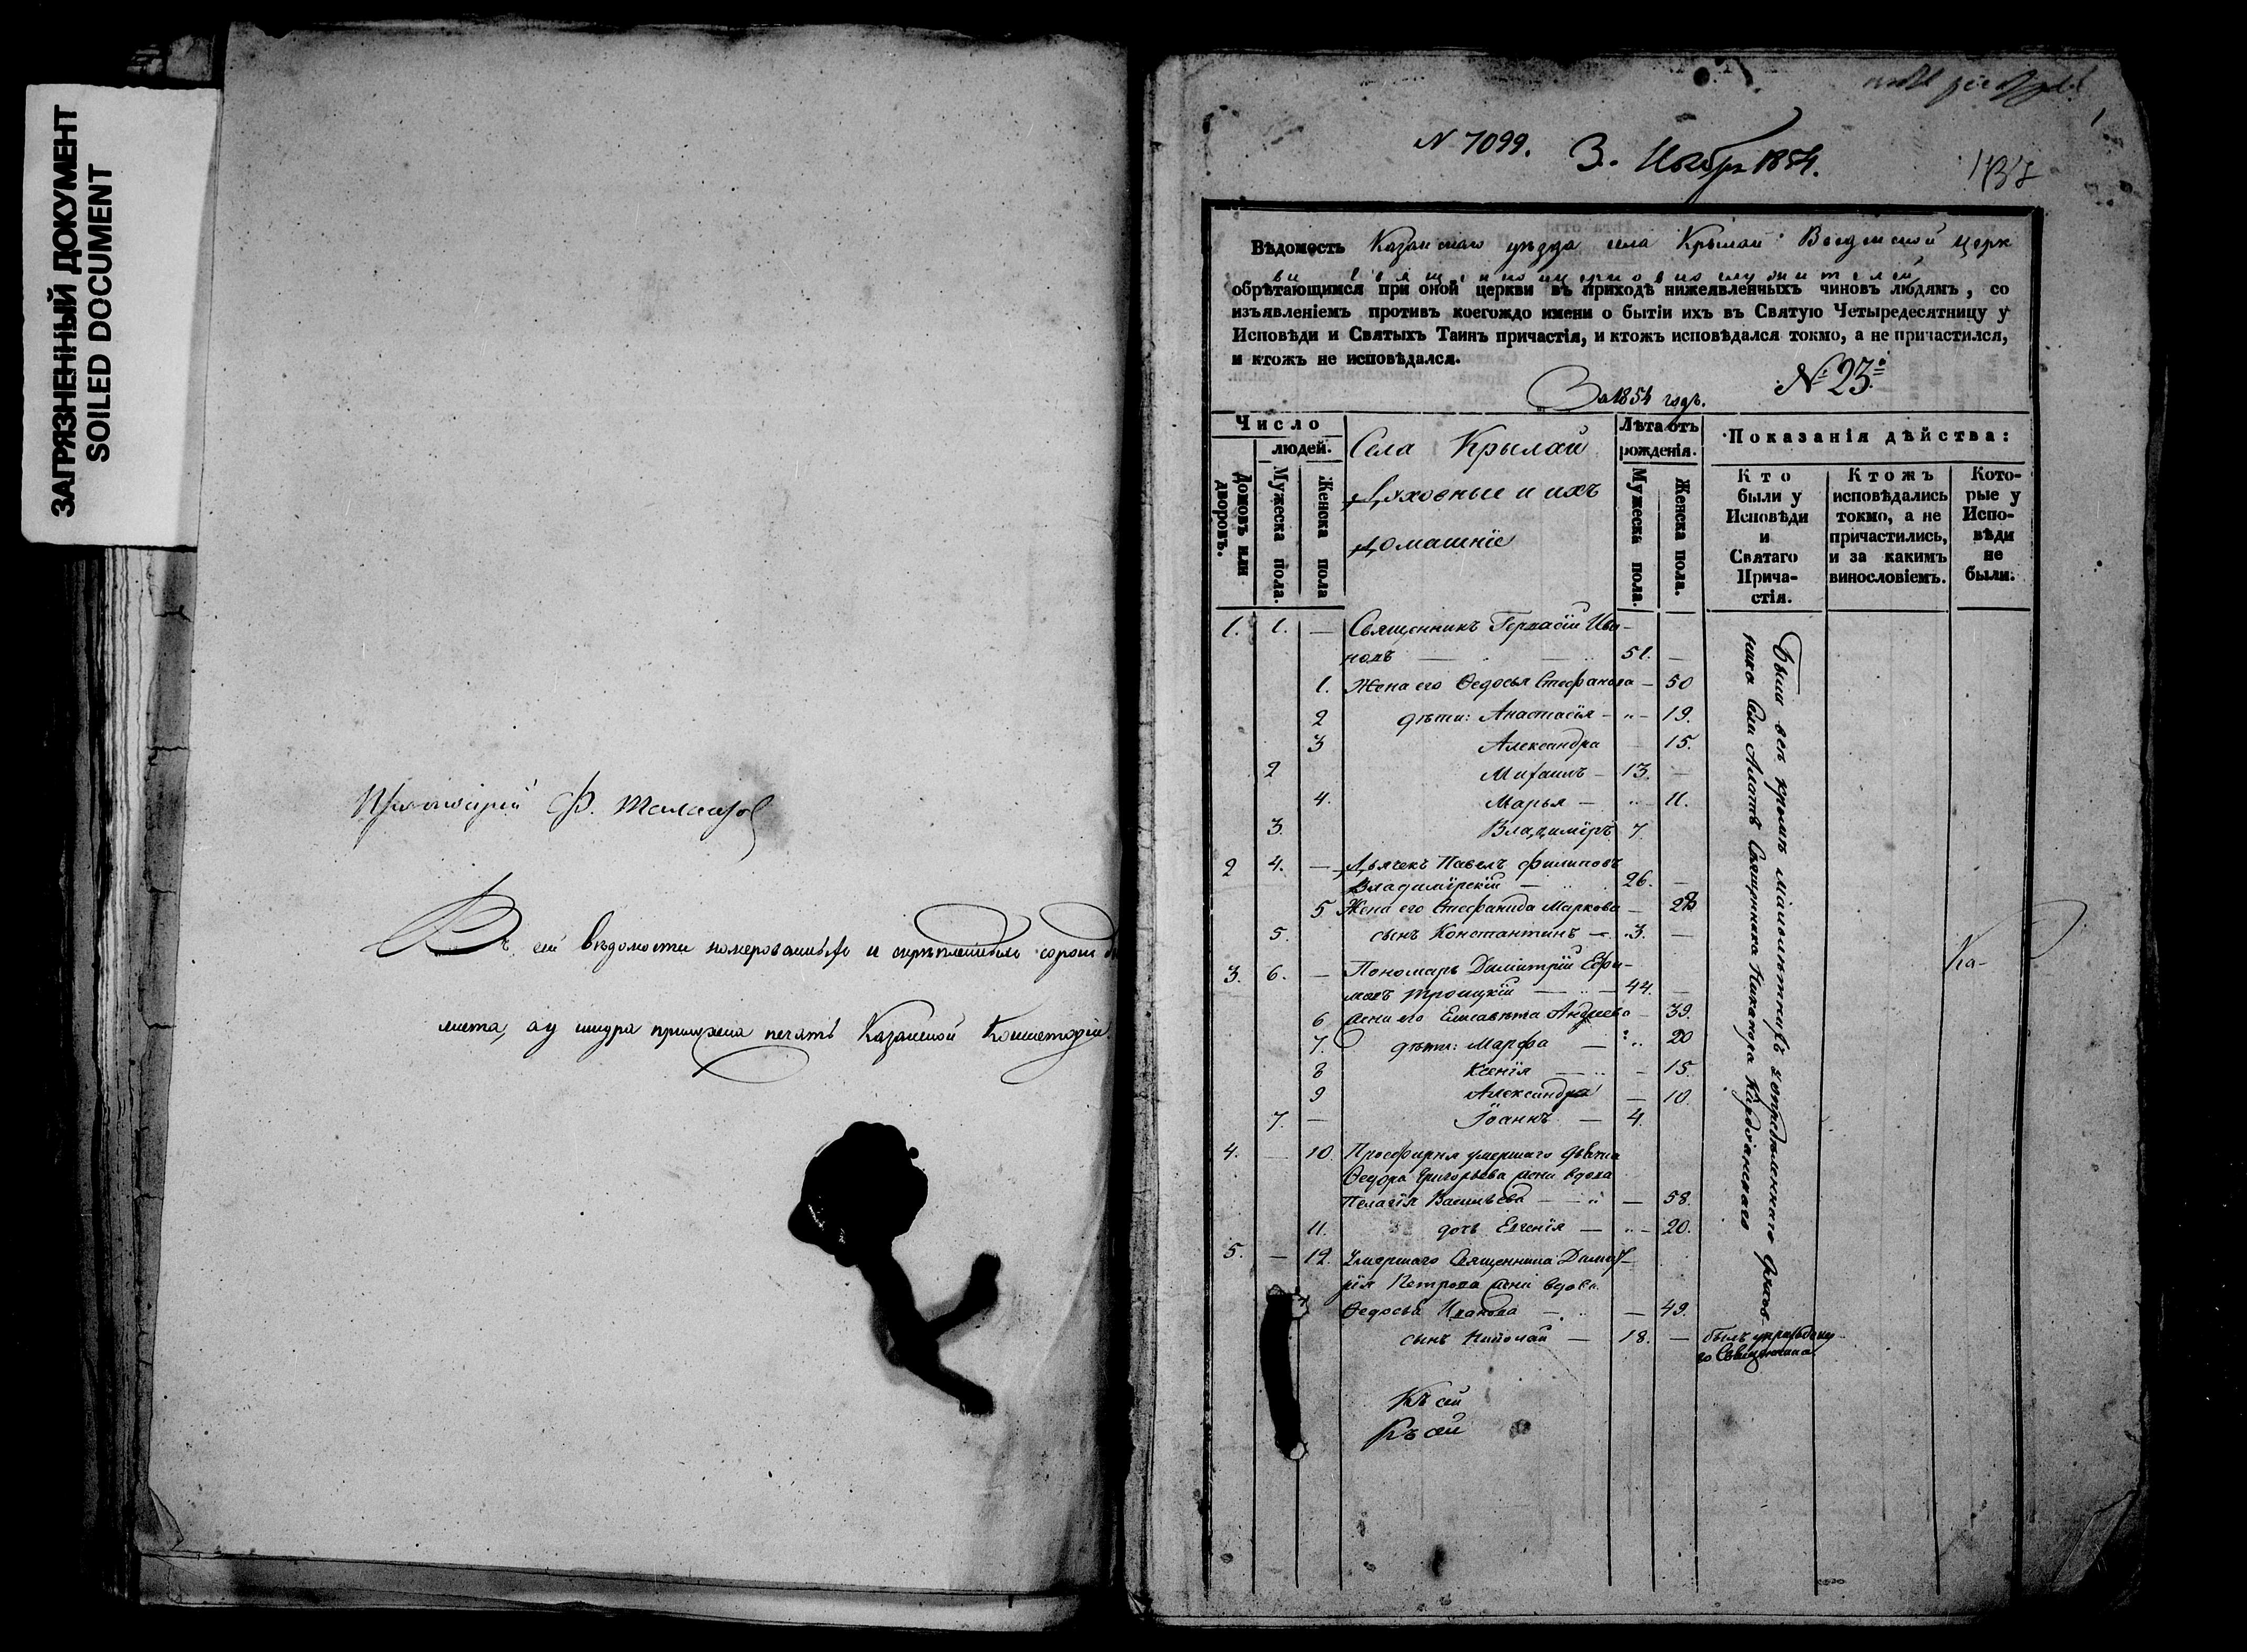 ЗАГРЯЗНЕННЫЙ ДОКУМЕНТ
SOILED DOCUMENT
Протоіерей Ф.
Въ сей вѣдомости
листа, а у шнура приложена печать Казанской Консисторіи.
N 7099. 3. Ноябр 1854.
Вѣдомость Казанскаго уѣзда села Крылай Введенской церк
ви священноцерковнослужителей
обрѣтающимся при оной церкви въ приходѣ нижеявленныхъ чиновъ людямъ, со
изъявленіемъ противъ коегождо имени о бытіи ихъ въ Святую Четыредесятницу у
Исповѣди и Святыхъ Таинъ причастія, и ктожъ исповѣдался токмо, а не причастился,
и ктожъ не исповѣдался.
№ 23.
За 1854 годъ.
Число
людей.
Домовъ или дворовъ.
Мужеска пола.
Женска пола
Села Крылай
Духовные и ихъ
домашніе
Лѣта отъ
рожденія.
Мужеска пола.
Женска пола.
Показанія дѣйства:
Кто
были у
Исповѣди
и
Святаго
Прича-
стія.
Ктожъ
исповѣдались
токмо, а не
причастились,
и за какимъ
винословіемъ.
Кото-
рые у
Испо-
вѣди
не
были.
1. 1. — Священникъ Герасій Ива-
новъ — 51. —
1. Жена его Ѳедосья Стефанова — 50
2 дѣти: Анастасія — " — 19.
3 Александра — 15.
2 Михаилъ — 13. —
4. Марья — " 11.
3. Владиміръ 7.
2 4. — Дьячекъ Павелъ Филиповъ
Владимірскій — " 26. —
5 Жена его Стефанида Маркова — 28
5. сынъ Константинъ — 3. —
3. 6. — Пономарь Димитрій Ефи-
мовъ Троицкій — 44. —
6 жена его Елисавета Андреева — 39.
7. дѣти: Марфа — " 20
8 Ксенія — " — 15.
9 Александра — 10.
7. — Іоаннъ — 4.
4. — 10. Просфирня умершаго дьячка
Ѳедора Григорьева жена вдова
Пелагія Васильева — " — 58.
11. дочь Евгенія — " — 20.
5. — 12. Умершаго Священника Димит-
рія Петрова жена вдова
Ѳедосья Иванова — " — 49.
сынъ Николай — 18. —
Были всѣ кромѣ малолѣтнихъ у опредѣленнаго духов-
ника Села Алатъ Священника Никанора
былъ у приходскаго Священника
Ка-
Къ сей
Къ сей